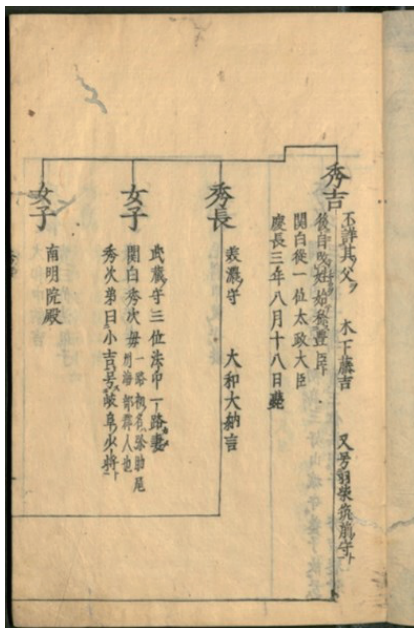 秀吉
不詳其父 木下藤吉 又号羽柴筑前守ト
後自改姓始称豊臣
関白従一位太政大臣
慶長三年八月十八日薨
秀長
美濃守 大和大納言
女子
武蔵守三位法印一路妻
関白秀次母
一路初名弥助尾
州海部郡人也
秀次弟曰小吉号岐阜少将
女子
南明院殿